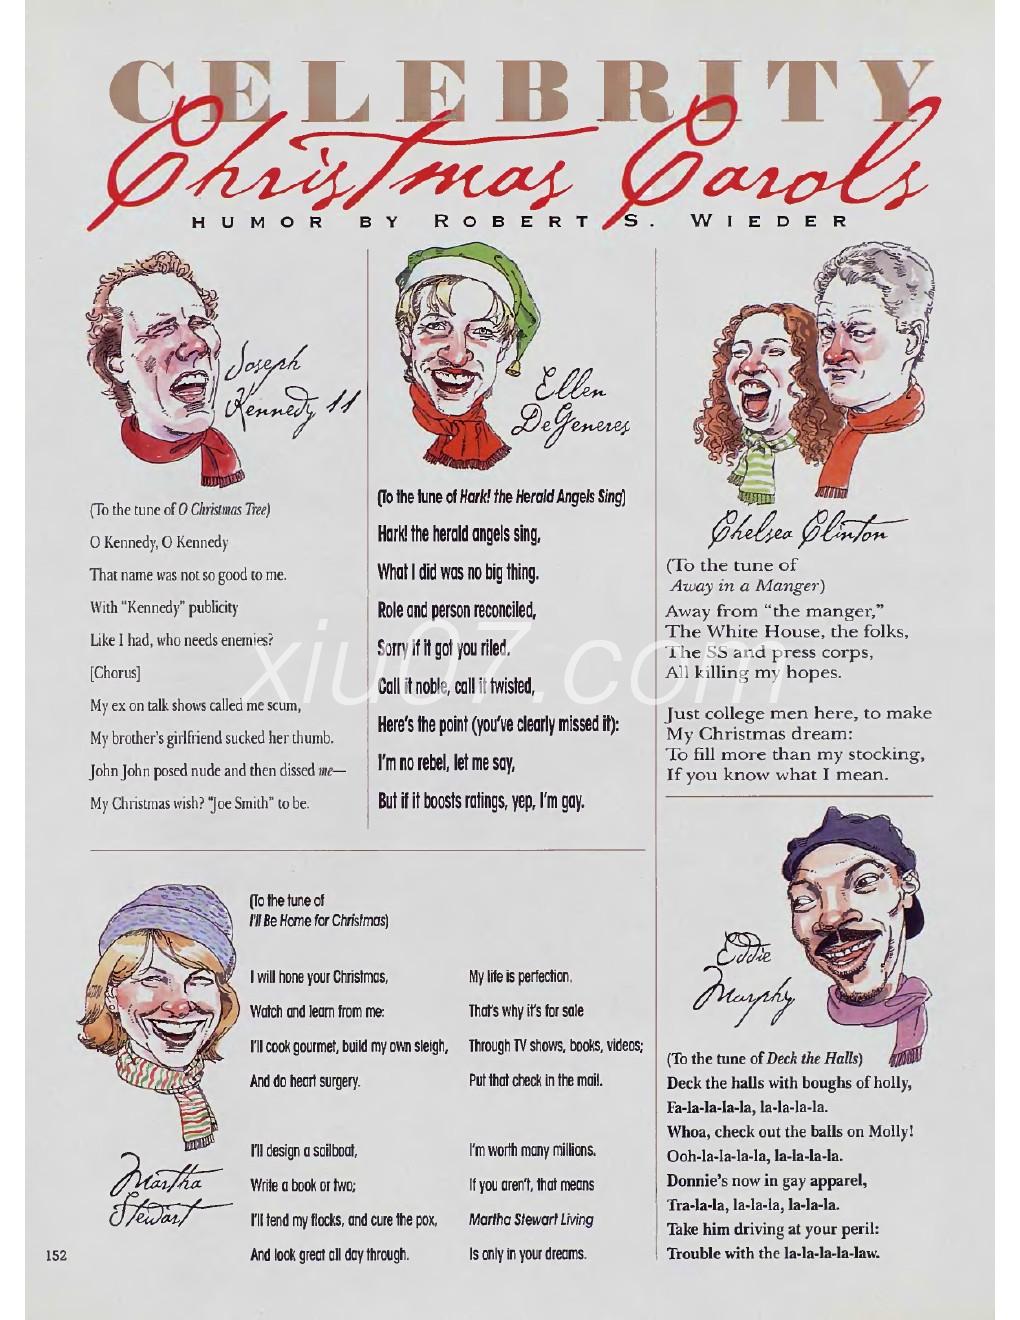 CELEBRITY
Christmas Carols
HUMOR BY ROBERT S. WIEDER
Joseph
Kennedy II
(To the tune of O Christmas Tree)
O Kennedy, O Kennedy
That name was not so good to me.
With "Kennedy" publicity
Like I had, who needs enemies?
[Chorus]
My ex on talk shows called me scum,
My brother's girlfriend sucked her thumb.
John John posed nude and then dissed me—
My Christmas wish? "Joe Smith" to be.
Ellen
DeGeneres
(To the tune of Hark! the Herald Angels Sing)
Hark! the herald angels sing,
What I did was no big thing.
Role and person reconciled,
Sorry if it got you riled.
Call it noble, call it twisted,
Here's the point (you've clearly missed it):
I'm no rebel, let me say,
But if it boosts ratings, yep, I'm gay.
Chelsea Clinton
(To the tune of
Away in a Manger)
Away from "the manger,"
The White House, the folks,
The SS and press corps,
All killing my hopes.
Just college men here, to make
My Christmas dream:
To fill more than my stocking,
If you know what I mean.
Martha
Stewart
(To the tune of
I'll Be Home for Christmas)
I will hone your Christmas,
Watch and learn from me:
I'll cook gourmet, build my own sleigh,
And do heart surgery.
I'll design a sailboat,
Write a book or two;
I'll tend my flocks, and cure the pox,
And look great all day through.
My life is perfection,
That's why it's for sale
Through TV shows, books, videos;
Put that check in the mail.
I'm worth many millions.
If you aren't, that means
Martha Stewart Living
Is only in your dreams.
Eddie
Murphy
(To the tune of Deck the Halls)
Deck the halls with boughs of holly,
Fa-la-la-la-la, la-la-la-la.
Whoa, check out the balls on Molly!
Ooh-la-la-la-la, la-la-la-la.
Donnie's now in gay apparel,
Tra-la-la, la-la-la, la-la-la.
Take him driving at your peril:
Trouble with the la-la-la-la-law.
152
xiu07.com